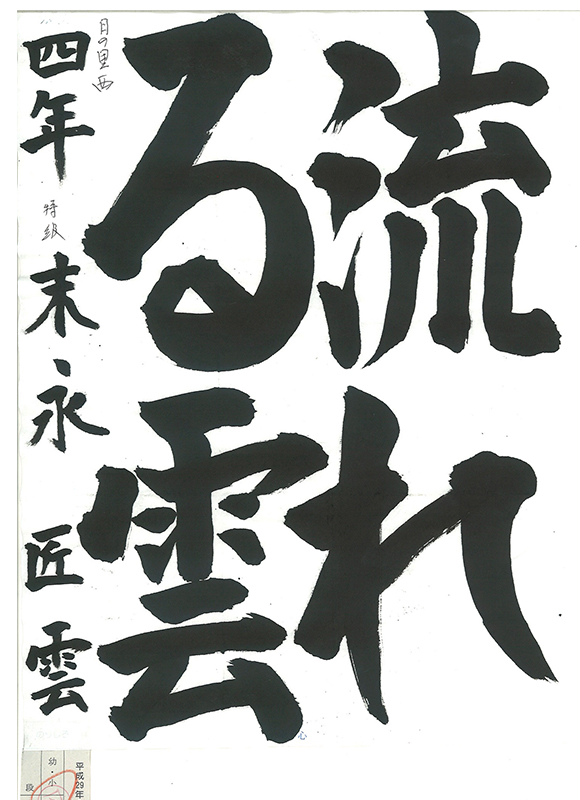 流れ
る雲
日の里西
四年
特級
末永 匠雲
平成29年
幼・小
段
心